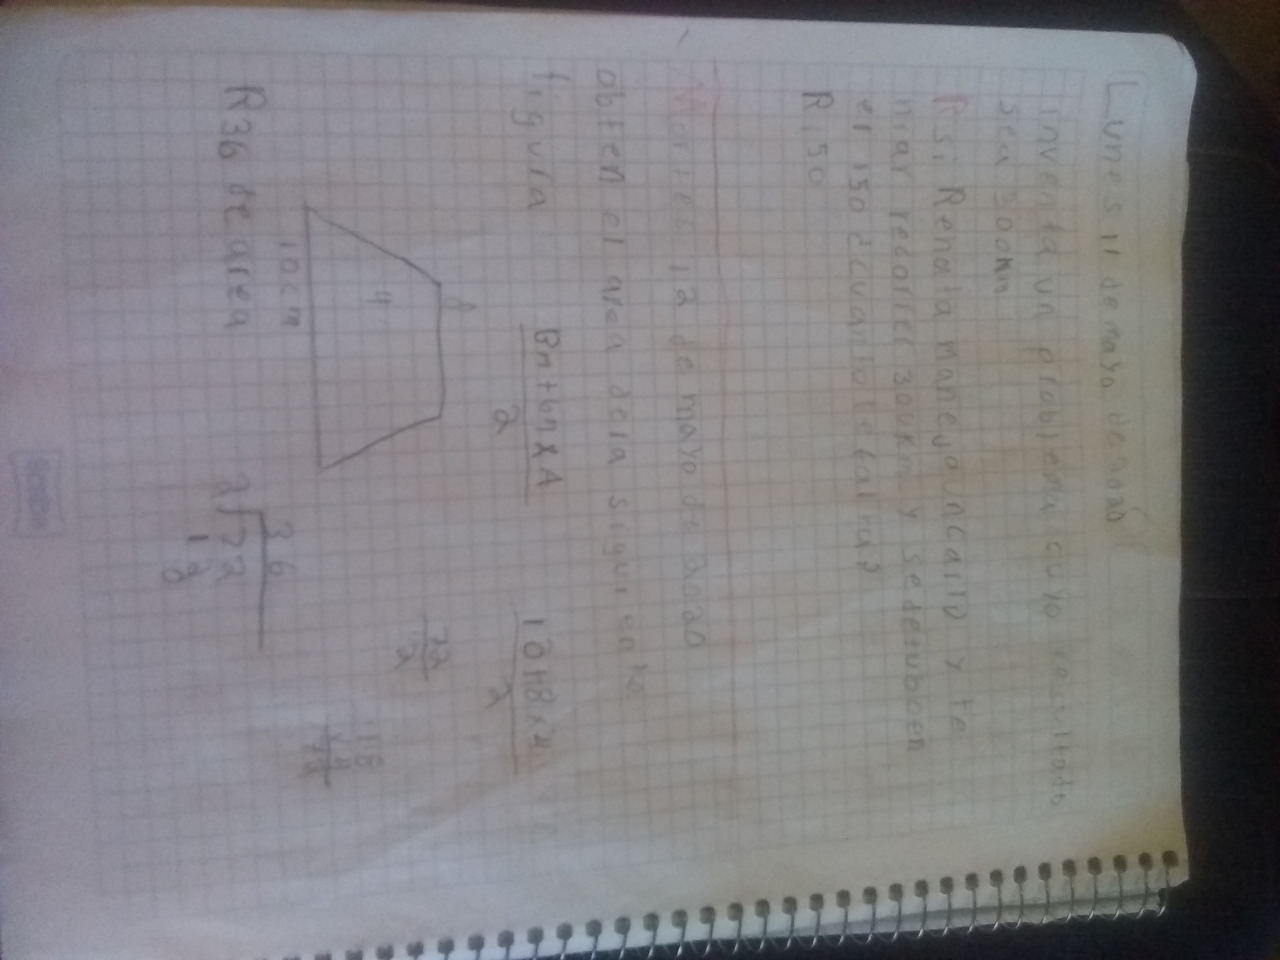 Lunes 11 de mayo de 2020
inventa un problema cuyo resultado
sea 300km
R si Renata maneja un carro y te
niar recorrer 300km y se detubo en
el 150 ¿cuanto le falta?
R 150
Martes 12 de mayo de 2020
obten el area de la siguiente
figura
Bn+bnxA
2
10+18x4
2
8
4
10cm
72
2
18
x4
72
R36 de area
36
2 72
12
0